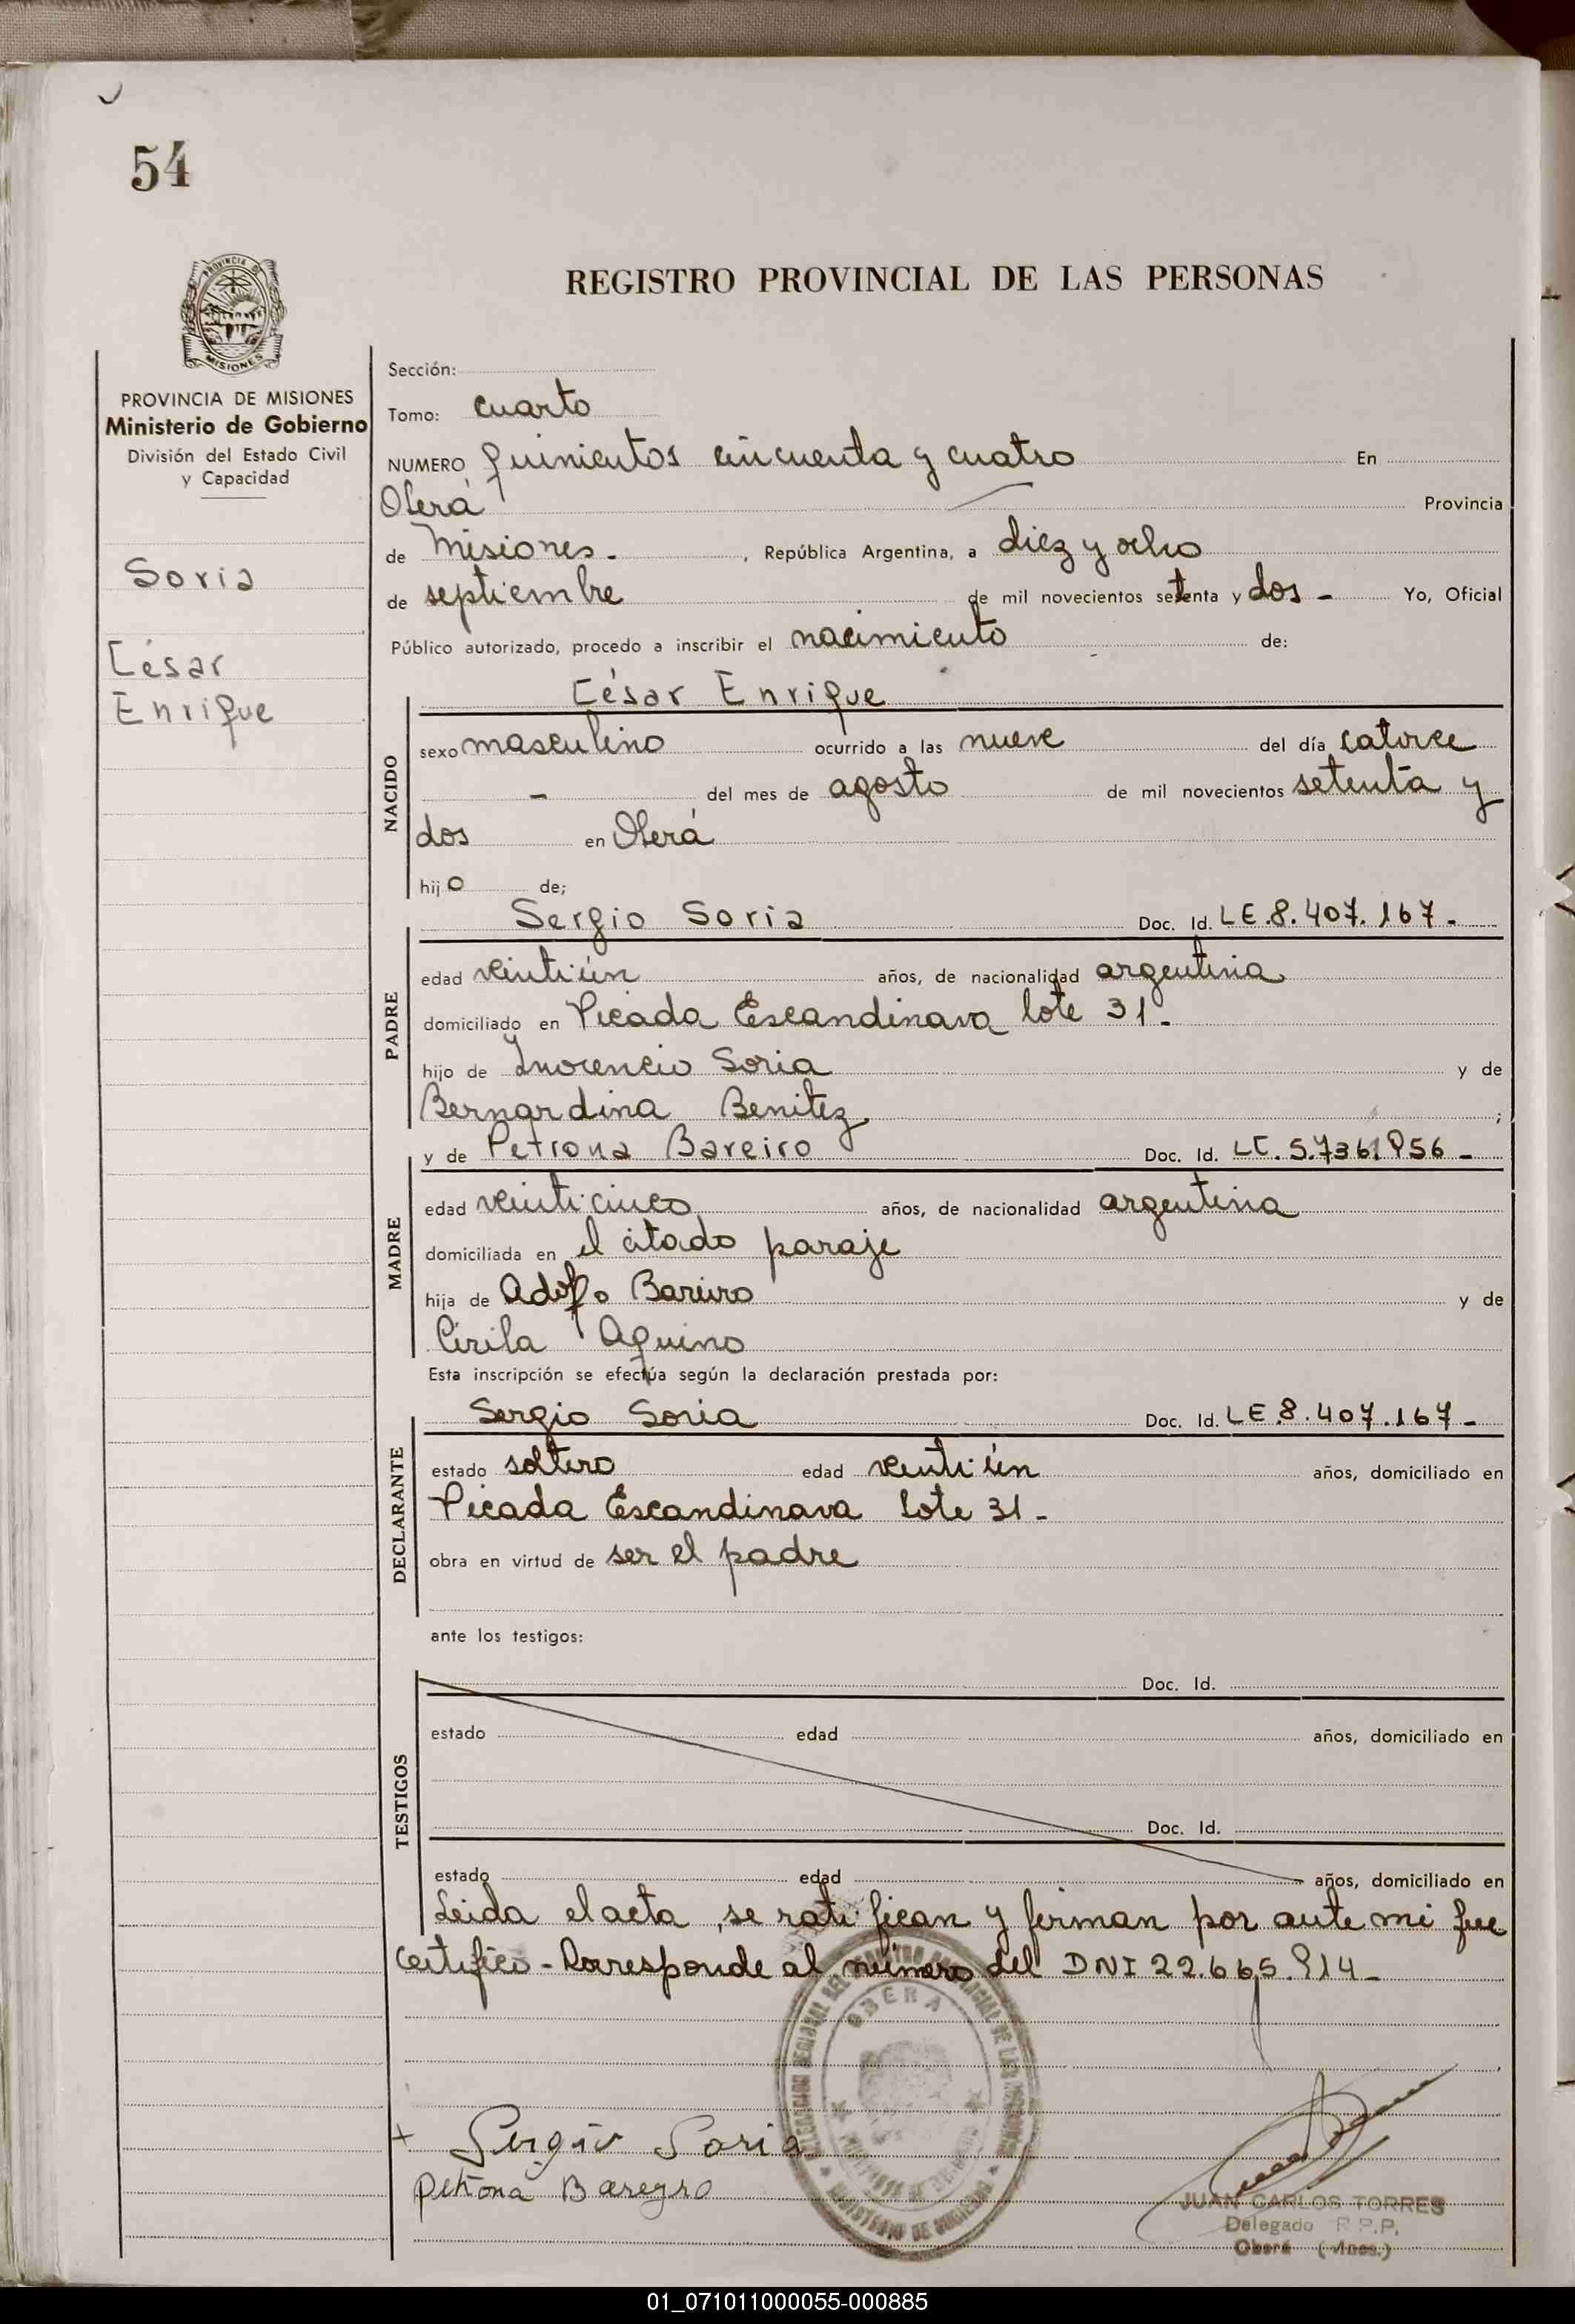 54
PROVINCIA DE
MISIONES
REGISTRO PROVINCIAL DE LAS PERSONAS
PROVINCIA DE MISIONES
Ministerio de Gobierno
División del Estado Civil
y Capacidad
Soria
César
Enrique
Sección:
Tomo: cuarto
NUMERO quinientos cincuenta y cuatro En
Oberá Provincia
de Misiones - , República Argentina, a diez y ocho
de septiembre de mil novecientos setenta y dos - Yo, Oficial
Público autorizado, procedo a inscribir el nacimiento de:
César Enrique
NACIDO
sexo masculino ocurrido a las nueve del día catorce
- del mes de agosto de mil novecientos setenta y
dos en Oberá
hijo de;
Sergio Soria Doc. Id. LE.8.407.167-
PADRE
edad veintiún años, de nacionalidad argentina
domiciliado en Picada Escandinava lote 31-
hijo de Inocencio Soria y de
Bernardina Benitez ;
y de Petrona Bareiro Doc. Id. LC. 5.736.856-
MADRE
edad veinticinco años, de nacionalidad argentina
domiciliada en el citado paraje
hija de Adolfo Bareiro y de
Cirila Aquino
Esta inscripción se efectúa según la declaración prestada por:
Sergio Soria Doc. Id. LE.8.407.167-
DECLARANTE
estado soltero edad veintiún años, domiciliado en
Picada Escandinava lote 31-
obra en virtud de ser el padre
ante los testigos:
Doc. Id.
TESTIGOS
estado edad años, domiciliado en
Doc. Id.
estado edad años, domiciliado en
Leida el acta, se ratifican y firman por ante mi que
certifico - Corresponde al número del DNI 22.665.814-
OBERA
+ Sergio Soria
Petrona Bareyro
JUAN CARLOS TORRES
Delegado R.P.P.
Oberá (Mnes.)
01_071011000055-000885